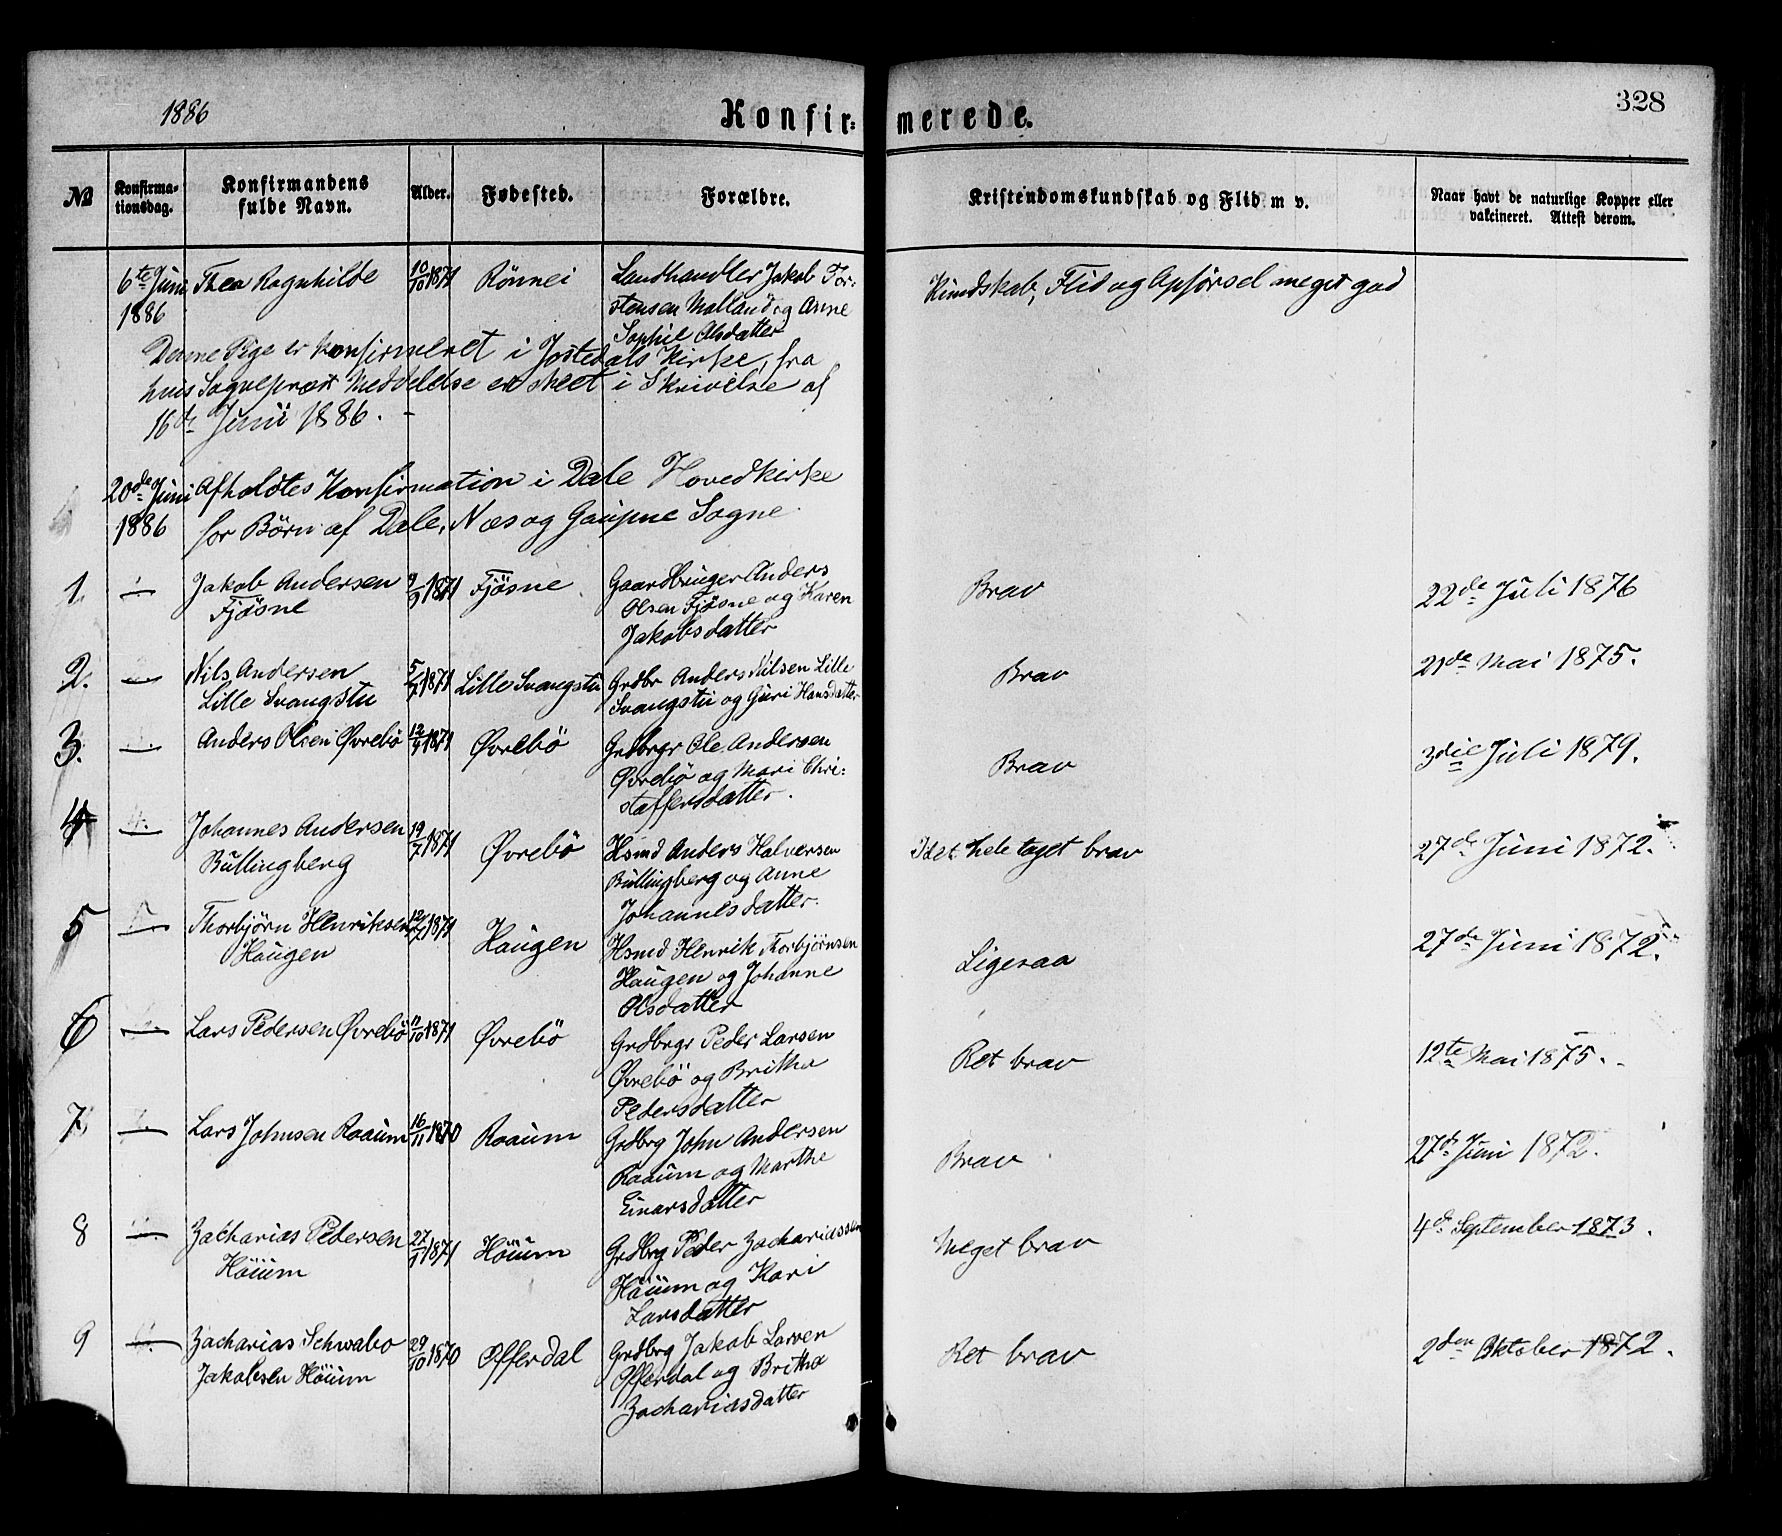 1886
Konfir= merede.
328
No
Konfirma-
tionsdag.
Konfirmandens
fulde Navn.
Alder.
Fødested.
Forældre.
Kristendomskundskab og Flid m v.
Naar havt de naturlige Kopper eller
vakcineret. Attest derom.
6te Juni Thea Ragnhilde 10/10 1871 Rönnei Landhandler Jakob Tor= Kundskab, Flid og Opførsel meget god
1886 stensen Molland og Anne
Sophie Olsdatter
Denne Pige er konfirmeret i Jostedals Kirke, fra
hvis Sogneprest Meddelelse er skeet i Skrivelse af
16de Juni 1886. -
20de Juni Afholdtes Konfirmation i Dale Hovedkirke
1886 for Börn af Dale, Næs og Gaupne Sogne.
1. Jakob Andersen 1871 Fjösne Gaardbruger Anders Brav 22de Juli 1876
Fjösne Olsen Fjösne og Karen
Jakobsdatter
2. Nils Andersen 5/7 1871 Lille Svangstu Grdbr Anders Nilsen Lille Brav 21de Mai 1875.
Lille Svangstu Svangstu og Guri Hansdatter
3. Anders Olsen Øvrebö 12/9 1871 Øvrebö Grdbrgr Ole Andersen Brav 3die Juli 1879.
Øvrebö og Mari Chri=
stoffersdatter.
4 Johannes Andersen 19/7 1871 Øvrebö Hsmd Anders Halvorsen I det hele taget brav 27de Juni 1872.
Bullingberg Bullingberg og Anne
Johannesdatter.
5 Thorbjörn Henriksen 1871 Haugen Hsmd Henrik Thorbjörnsen Ligesaa 27de Juni 1872.
Haugen Haugen og Johanne
Olsdatter
6 Lars Pedersen Øvrebö 11/10 1871 Øvrebö Grdbrgr Peder Larsen Ret brav 12te Mai 1875.
Øvrebö og Britha
Pedersdatter
7 Lars Johnsen Raaum 16/11 1870 Raaum Grdbrg John Andersen Brav 27de Juni 1872.
Raaum og Marthe
Einarsdatter
8 Zacharias Pedersen 27/1 1871 Höium Grdbrg Peder Zachariassen Meget brav 4de September 1873.
Höium Höium og Kari
Larsdatter
9 Zacharias Schwabo 29/10 1870 Offerdal Grdbrg Jakob Larsen Ret brav 2den Oktober 1872.
Jakobsen Höium Offerdal og Britha
Zachariasdatter